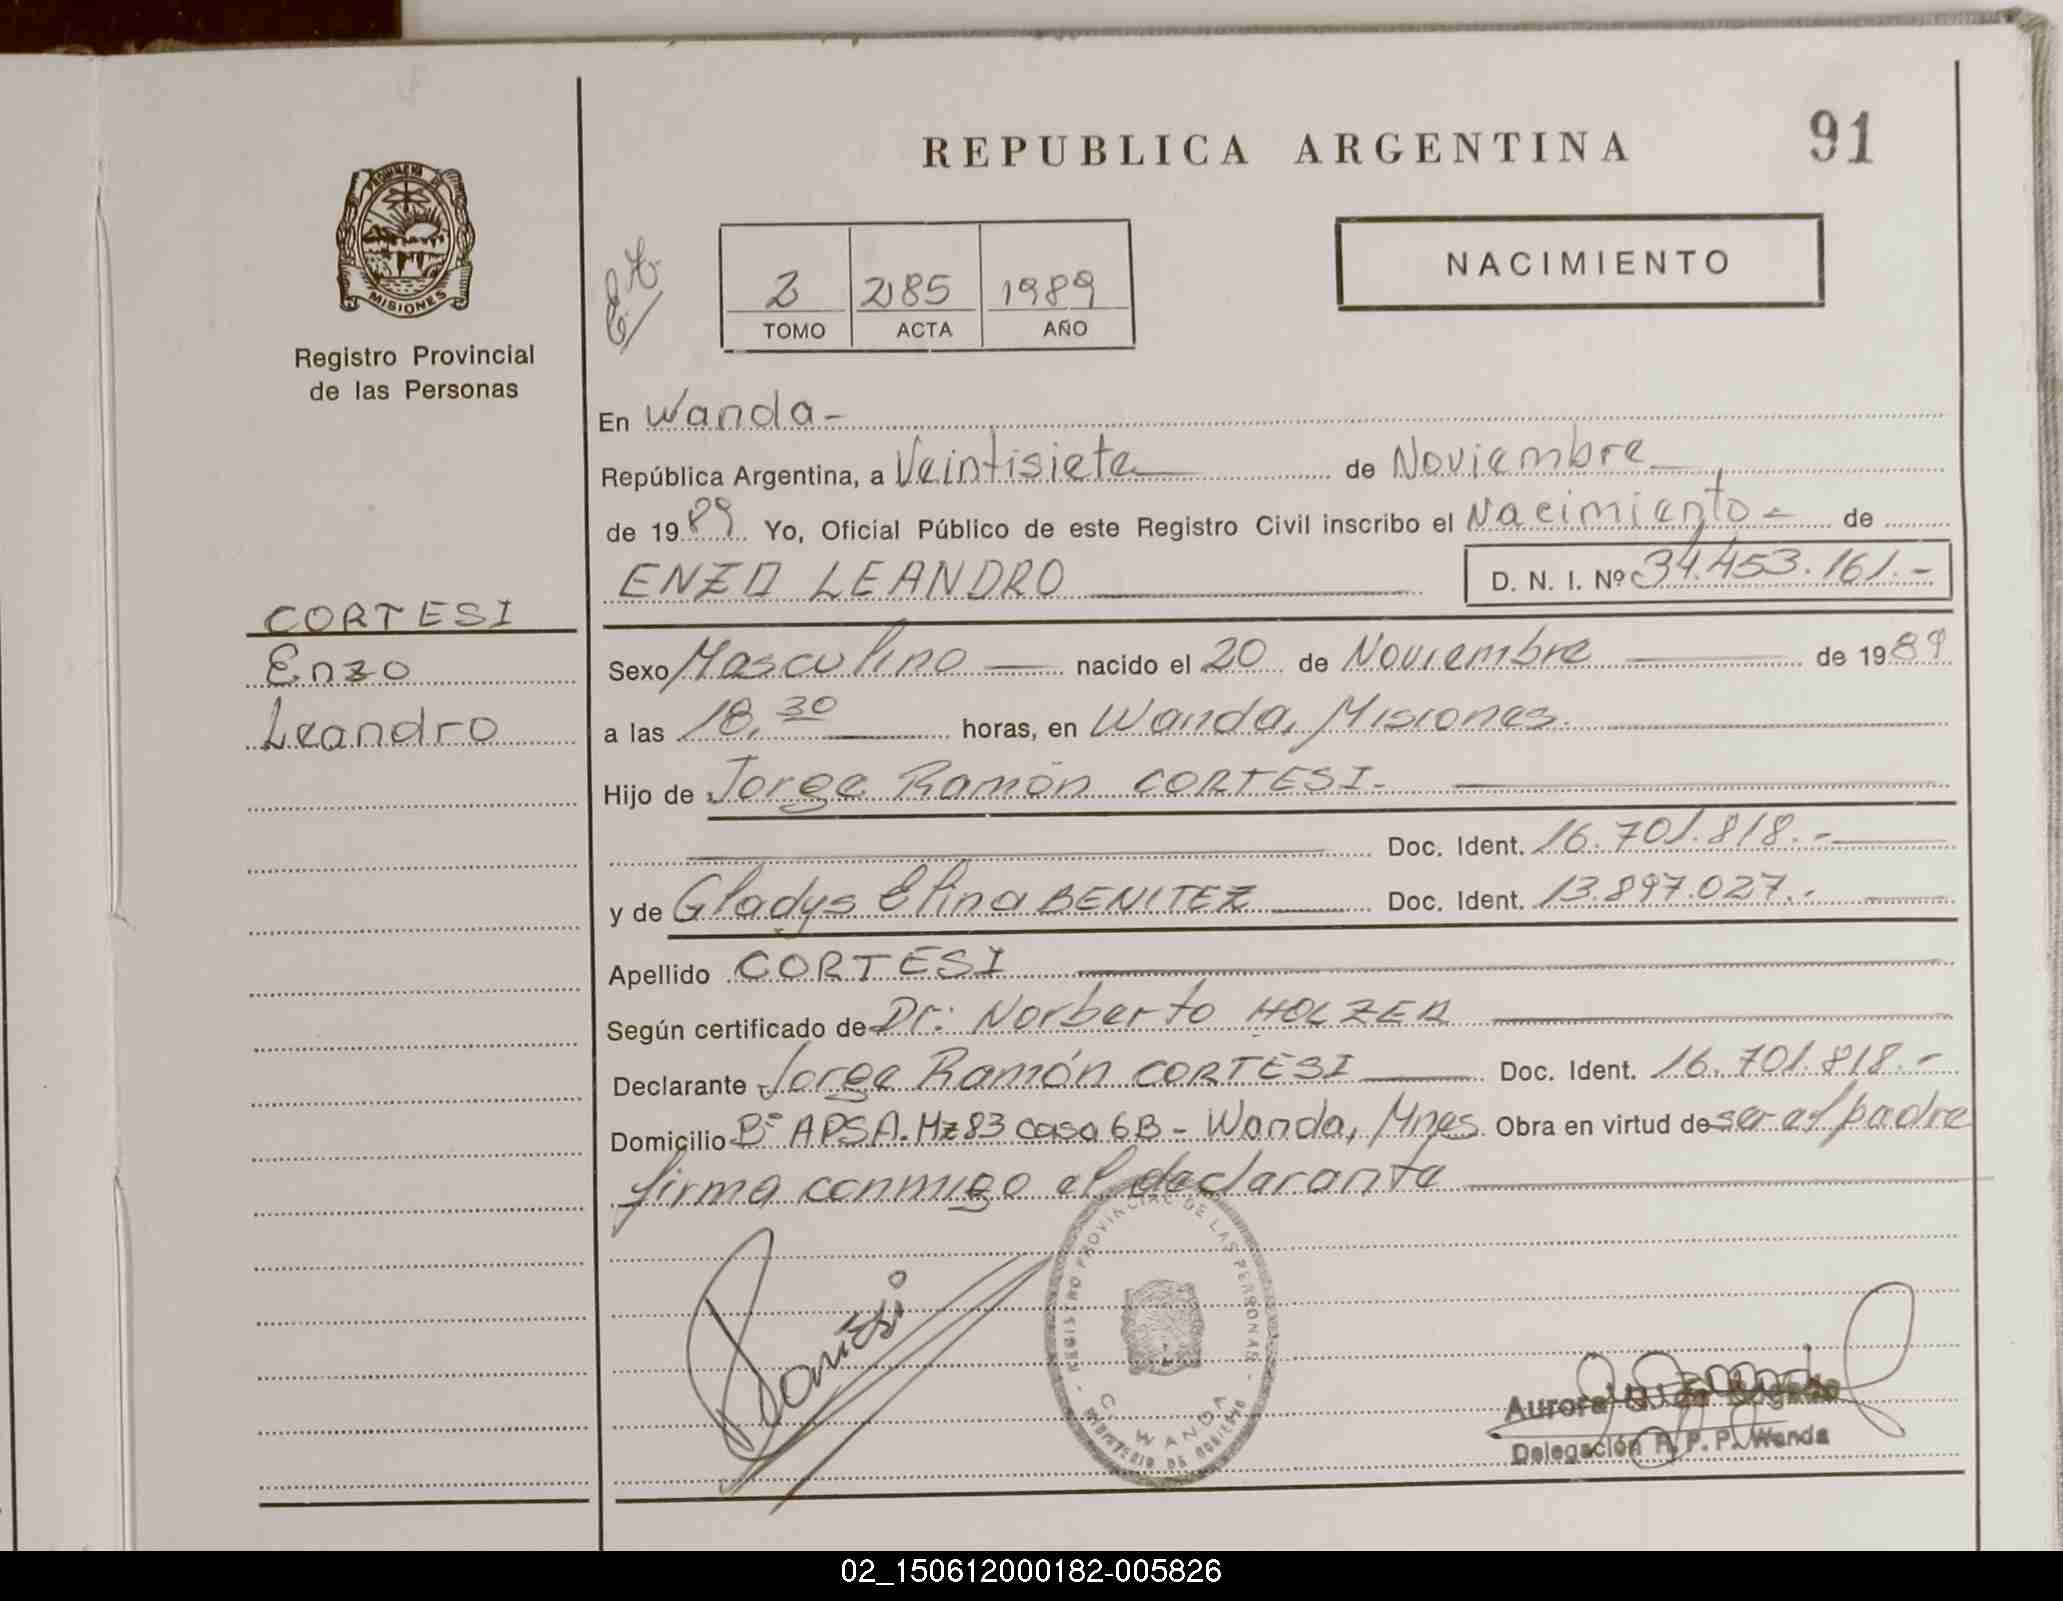 REPUBLICA ARGENTINA
91
NACIMIENTO
E.T.
2 285 1989
TOMO ACTA AÑO
PROVINCIA DE
MISIONES
Registro Provincial
de las Personas
CORTESI
Enzo
Leandro
En Wanda-
República Argentina, a Veintisiete de Noviembre
de 1989 Yo, Oficial Público de este Registro Civil inscribo el Nacimiento - de
ENZO LEANDRO D. N. I. Nº 34.453.161.-
Sexo Masculino nacido el 20 de Noviembre de 1989
a las 18,30 horas, en Wanda, Misiones.
Hijo de Jorge Ramón CORTESI.
Doc. Ident. 16.701.818.-
y de Gladys Elina BENITEZ Doc. Ident. 13.897.027.-
Apellido CORTESI
Según certificado de Dr: Norberto HOLZER
Declarante Jorge Ramón CORTESI Doc. Ident. 16.701.818.-
Domicilio Bº APSA. Mz 83 casa 6B - Wanda, Mnes. Obra en virtud de ser el padre
firma conmigo el declarante
REGISTRO PROVINCIAL DE LAS PERSONAS
WANDA
MINISTERIO DE GOBIERNO
Aurora
Delegación R. P. P. Wanda
02_150612000182-005826